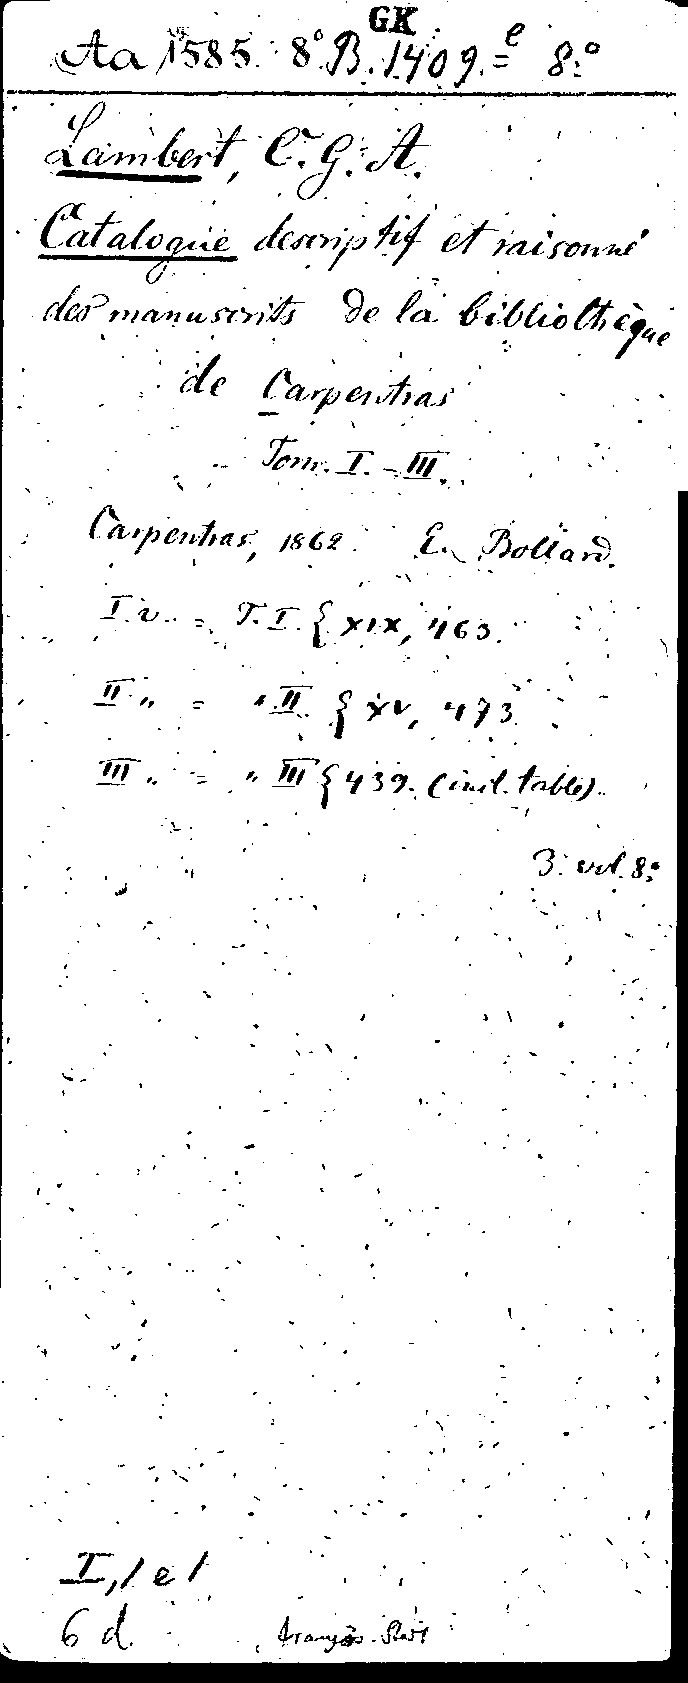 GK
Aa 1585. 8° B. 1409.e 8:°
Lambert, C. G. A.
Catalogue descriptif et raisonné
des manuscrits de la bibliothèque
de Carpentras
Tom. I. - III.
Carpentras, 1862. E. Rolland.
I. v. = T. I. { XIX, 463.
II. „ = „ II. { XV, 473.
III „ = „ III { 439. (incl. table).
3. vol. 8:°
I, 1 e 1
6 d.